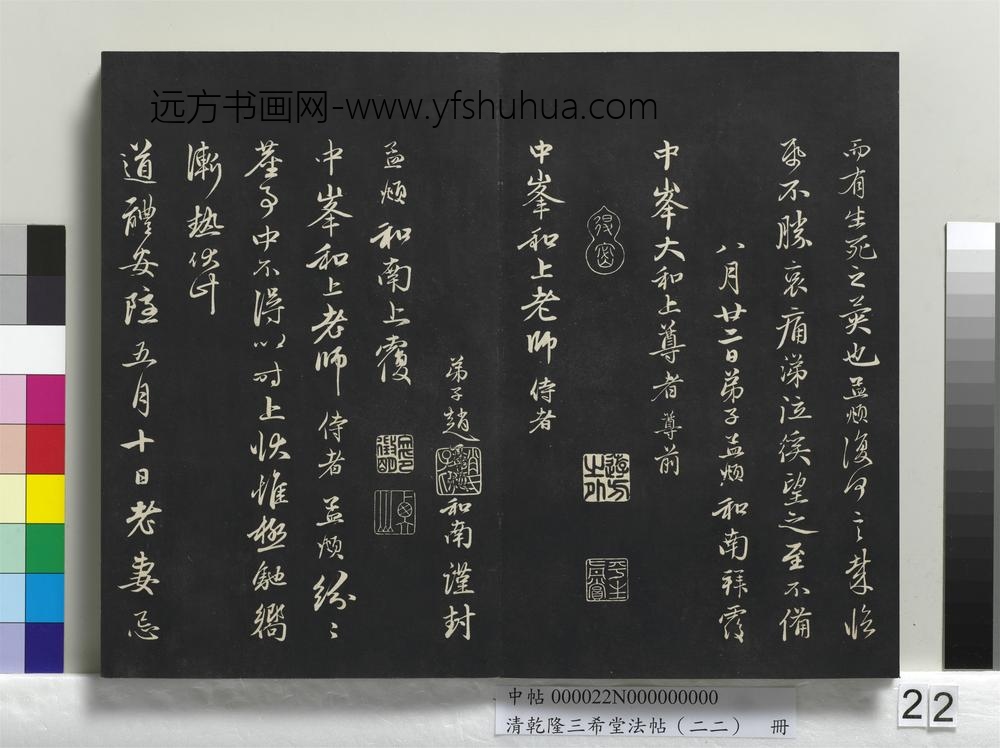 远方书画网-www.yfshuhua.com
而有生死之異也孟頫復何言楚臨
紙不勝哀痛涕泣徯望之至不備
八月廿二日弟子孟頫和南拜覆
中峯大和上尊者尊前
中峯和上老師侍者
弟子趙孟頫和南謹封
孟頫和南上覆
中峯和上老師侍者孟頫紛〻
塟事中不得以時上狀惟極馳嚮
漸熱伏惟
道體安隱五月十日老妻忌
中帖 000022N000000000
清乾隆三希堂法帖（二二） 冊
22